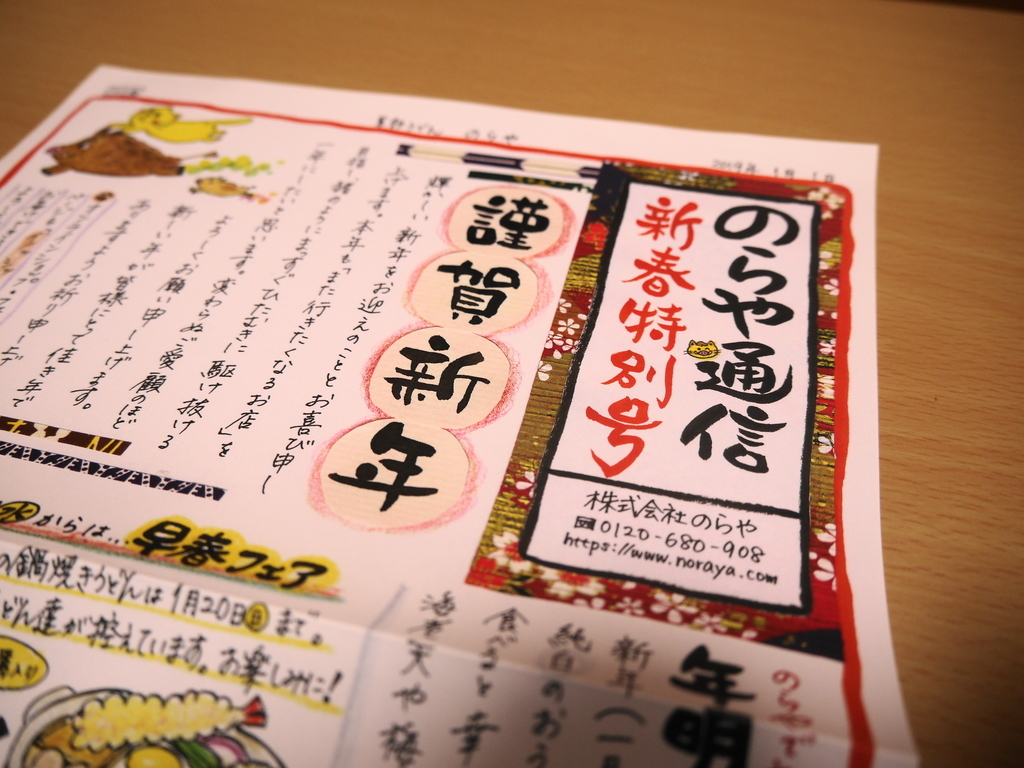 手打うどん のらや
2019年 1月 1日
のらや通信
新春特別号
株式会社 のらや
0120-680-908
https://www.noraya.com
謹賀新年
輝しい新年をお迎えのこととお喜び申し
上げます。本年も「また行きたくなるお店」を
目指し猪のようにまっすぐひたむきに駆け抜ける
一年にしたいと思います。変わらぬご愛顧のほど
よろしくお願い申し上げます。
新しい年が皆様にとって佳き年で
ありますようお祈り申し上げ
水からは、早春フェア
の鍋焼きうどんは1月20日日まで。
どん達が控えています。お楽しみに!
のらやで
年明
新年(一月
純白のおう
食べると幸
海老天や梅